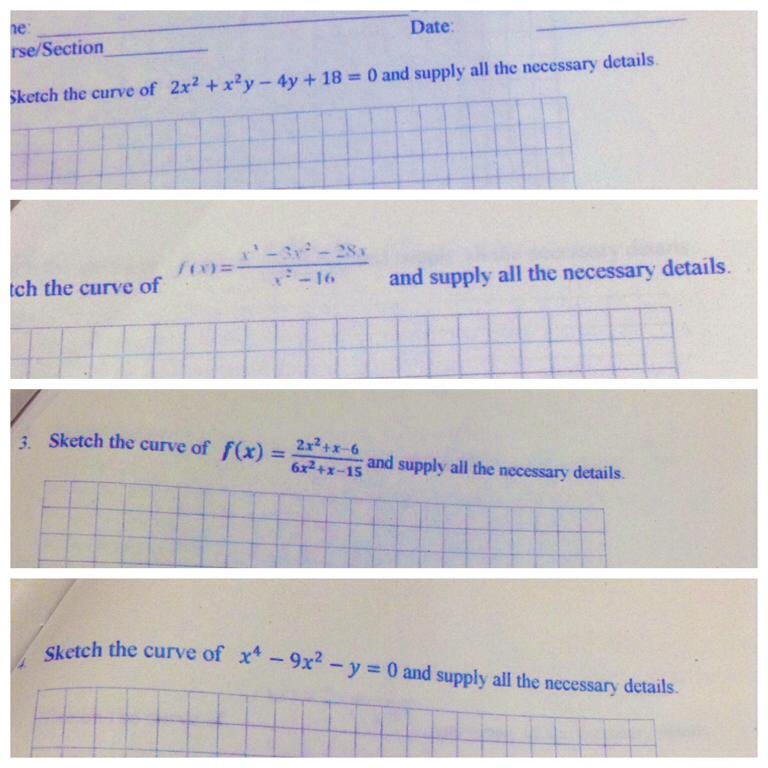 ne: Date:
rse/Section
Sketch the curve of 2x² + x²y − 4y + 18 = 0 and supply all the necessary details.
tch the curve of f(x) = (x³ − 3x² − 28x)/(x² − 16) and supply all the necessary details.
3. Sketch the curve of f(x) = (2x²+x−6)/(6x²+x−15) and supply all the necessary details.
Sketch the curve of x⁴ − 9x² − y = 0 and supply all the necessary details.